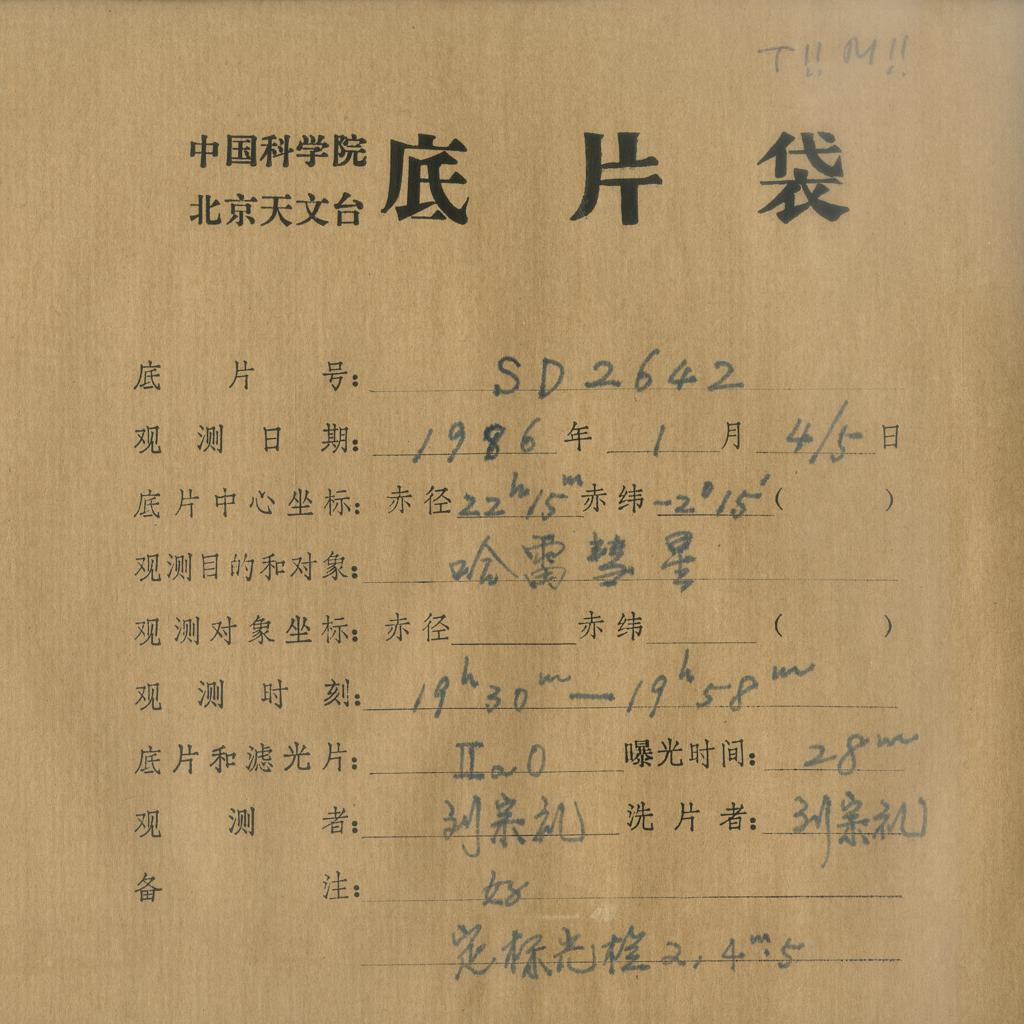 T!! M!!
中国科学院
北京天文台
底片袋
底片号: SD2642
观测日期: 1986年1月4/5日
底片中心坐标: 赤径22h15m赤纬-2°15′( )
观测目的和对象: 哈雷彗星
观测对象坐标: 赤径 赤纬 ( )
观测时刻: 19h30m—19h58m
底片和滤光片: IIaO 曝光时间: 28m
观测者: 刘宗礼 洗片者: 刘宗礼
备注: 好
定标光楼2, 4m.5